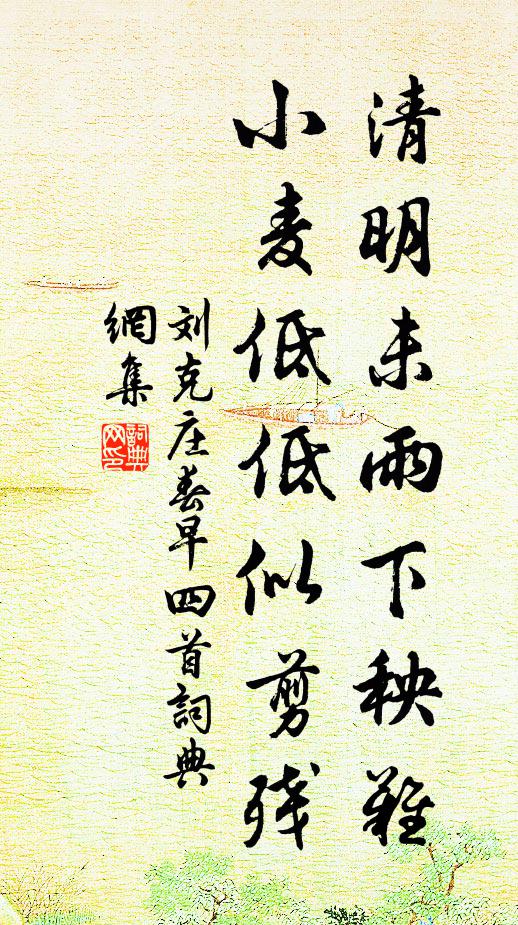 清明未雨下秧难
小麦低低似剪残
刘克庄春早四首詞典
網集
詞典
网印